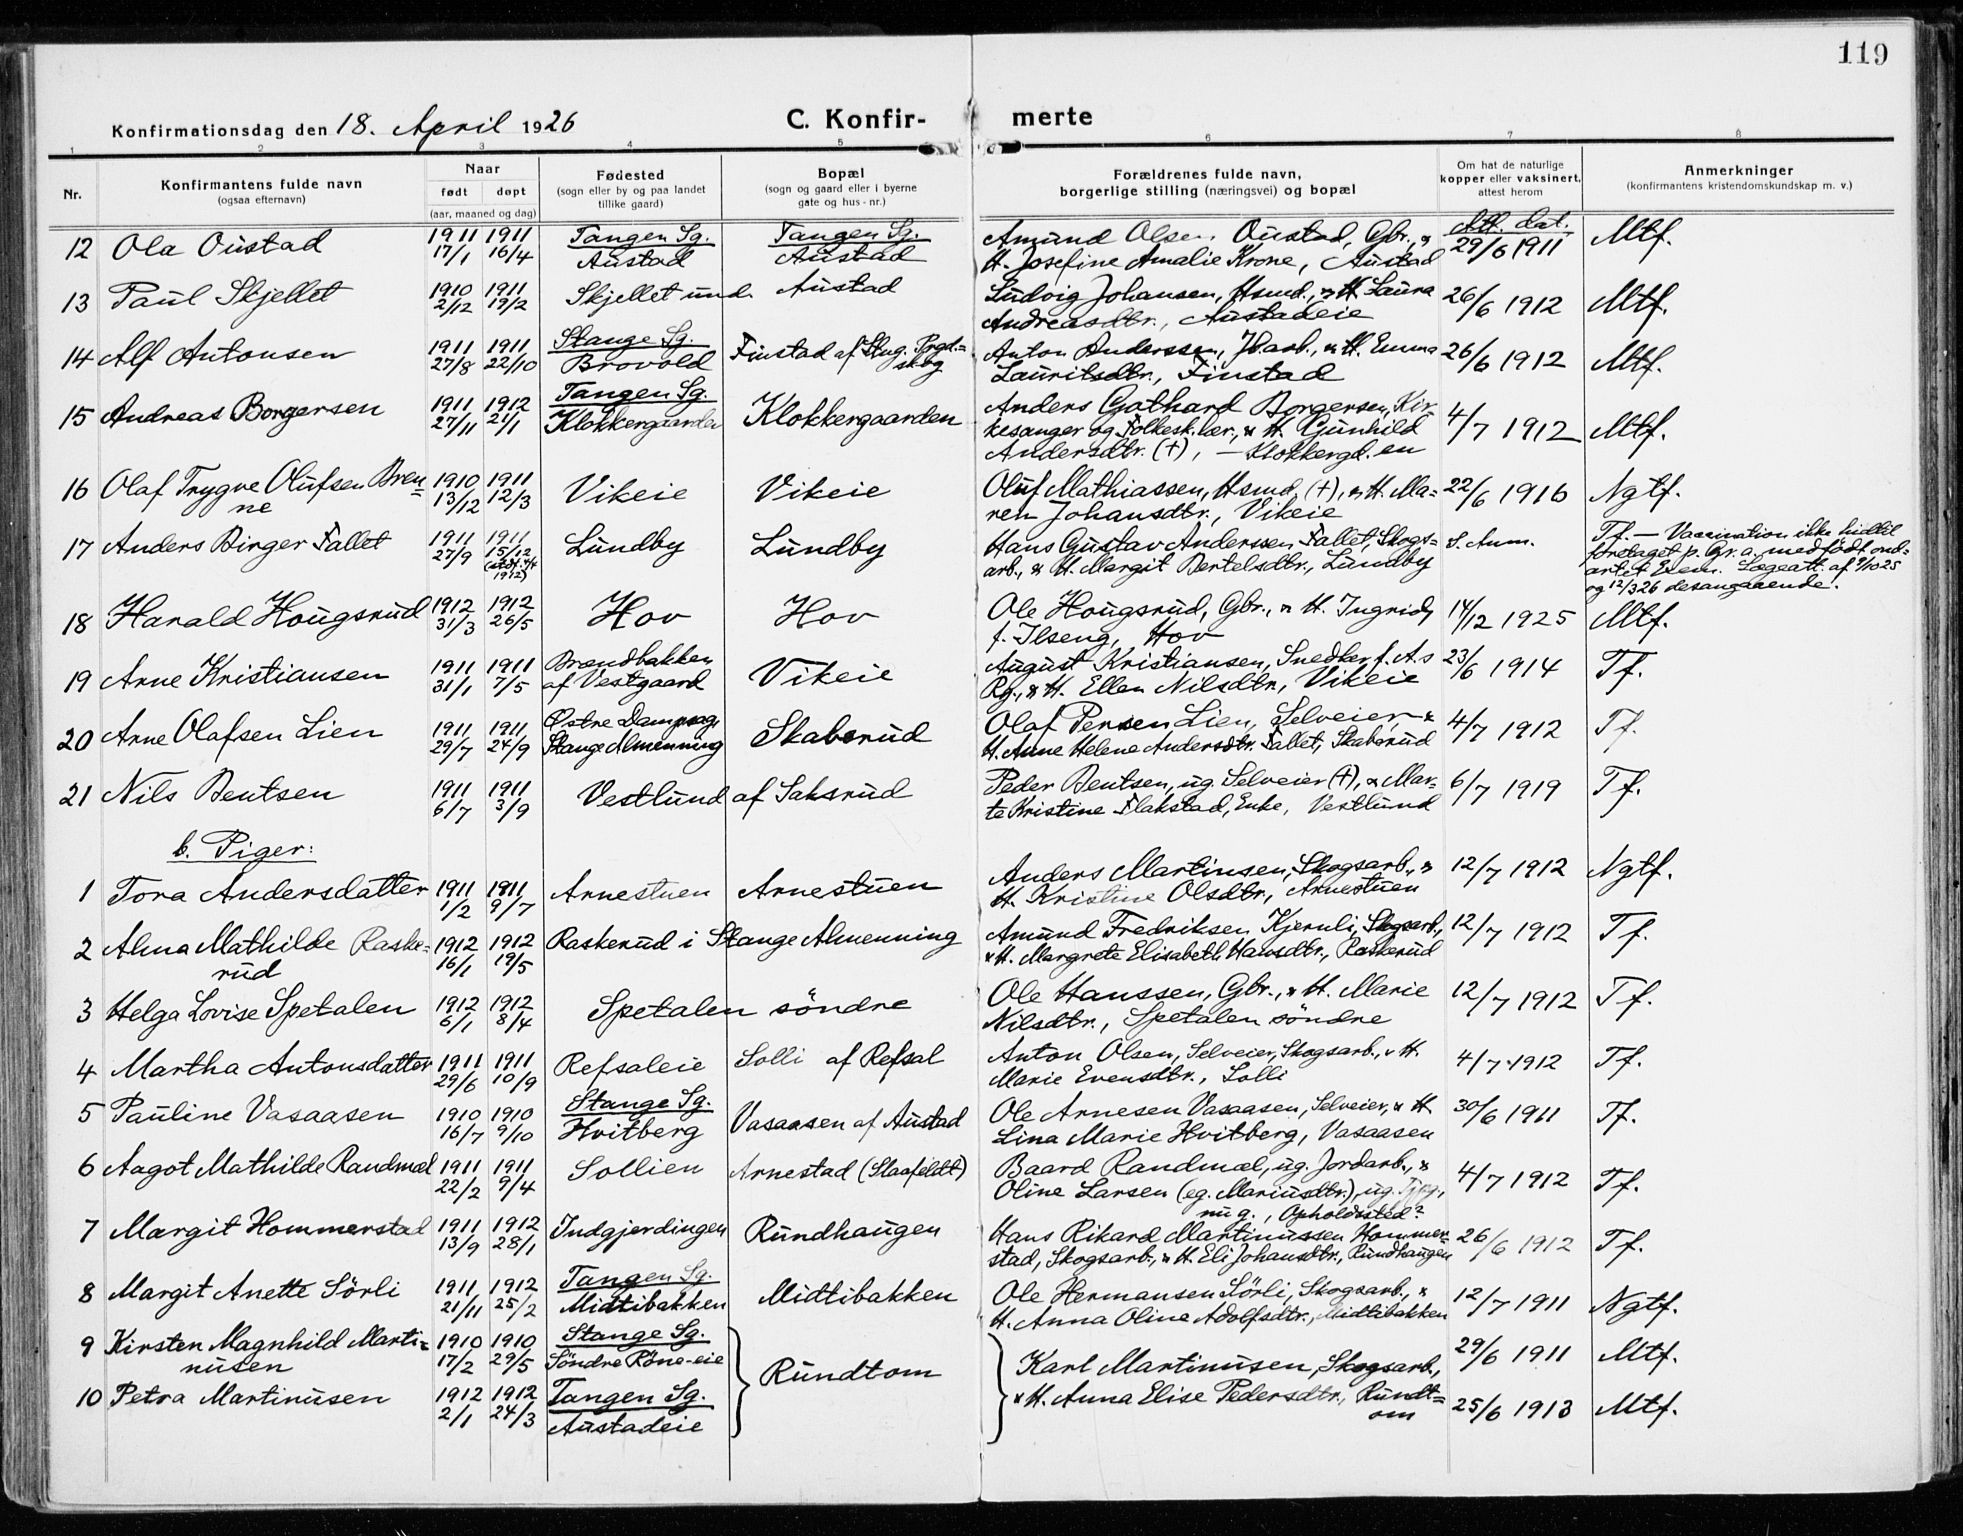 119
Konfirmationsdag den 18. April 1926 C. Konfir- merte
1 2 3 4 5 6 7 8
Nr. Konfirmantens fulde navn (ogsaa efternavn) Naar født døpt (aar, maaned og dag) Fødested (sogn eller by og paa landet tillike gaard) Bopæl (sogn og gaard eller i byerne gate og hus-nr.) Forældrenes fulde navn, borgerlige stilling (næringsvei) og bopæl Om hat de naturlige kopper eller vaksinert, attest herom Anmerkninger (konfirmantens kristendomskundskap m. v.)
12 Ola Oustad 1911 17/1 1911 16/4 Tangen Sg. Austad Tangen Sg. Austad Amund Olsen Oustad, Gbr., &
H. Josefine Amalie Krone, Austad Att. dat. 29/6 1911 Mtf.
13 Paul Skjellet 1910 2/12 1911 19/2 Skjellet und. Austad Ludvig Johansen, Hsmd., & H. Laura
Andreasdtr., Austadeie 26/6 1912 Mtf.
14 Alf Antonsen 1911 27/8 1911 22/10 Stange Sg. Brovold Finstad af Stng. Bygd.=
skog Anton Anderssen, Jbarb., & H. Emma
Lauritsdtr., Finstad 26/6 1912 Mtf.
15 Andreas Borgersen 1911 27/11 1912 21/1 Tangen Sg. Klokkergaarden Klokkergaarden Anders Gothard Borgersen, Kir-
kesanger og Folkesk.lær., & H. Gunhild
Andersdtr. (†), — Klokkergd.en 4/7 1912 Mtf.
16 Olaf Trygve Olufsen Bren=
ne 1910 13/12 1911 12/3 Vikeie Vikeie Oluf Mathiassen, Hsmd. (†), & H. Ma=
ren Johansdtr., Vikeie 22/6 1916 Ngtf.
17 Anders Birger Fallet 1911 27/9 1911 15/12 (stdf. 4/4 1912) Lundby Lundby Hans Gustav Anderssen Fallet, Skogs=
arb., & H. Margit Bertelsdtr., Lundby s. Anm. Tf. — Vaccination ikke hidtil
foretaget p. gr. a. medfödt ond=
artet Exem. Lægeatt. af 9/10 25
og 12/3 26 desangaaende.
18 Harald Hougsrud 1912 31/3 1912 26/5 Hov Hov Ole Hougsrud, Gbr., & H. Ingrid,
f. Ilseng, Hov 14/12 1925 Mtf.
19 Arne Kristiansen 1911 31/1 1911 7/5 Brændbakken af Vestgaard Vikeie August Kristiansen, Snedker f. A.s
Rg., & H. Ellen Nilsdtr., Vikeie 23/6 1914 Tf.
20 Arne Olafsen Lien 1911 29/7 1911 24/9 Østre Dampsag, Stange Almenning Skaberud Olaf Persen Lien, Selveier, &
H. Anne Helene Andersdtr. Fallet, Skaberud 4/7 1912 Tf.
21 Nils Bentsen 1911 6/7 1911 3/9 Vestlund af Saksrud Peder Bentsen, ug. Selveier (†), & Mar=
te Kristine Flakstad, Enke, Vestlund 6/7 1919 Tf.
b. Piger:
1 Tora Andersdatter 1911 1/2 1911 9/7 Arnestuen Arnestuen Anders Martinsen, Skogsarb., &
H. Kristine Olsdtr., Arnestuen 12/7 1912 Ngtf.
2 Alma Mathilde Raske=
rud 1912 16/1 1912 19/5 Raskerud i Stange Almenning Amund Fredriksen Kjernli, Skogsarb.,
& H. Margrete Elisabeth Hansdtr., Raskerud 12/7 1912 Tf.
3 Helga Lovise Spetalen 1912 6/1 1912 8/4 Spetalen söndre Ole Hanssen, Gbr., & H. Marie
Nilsdtr., Spetalen söndre 12/7 1912 Tf.
4 Martha Antonsdatter 1911 29/6 1911 10/9 Refsaleie Solli af Refsal Anton Olsen, Selveier, Skogsarb., & H.
Marie Evensdtr., Solli 4/7 1912 Tf.
5 Pauline Vasaasen 1910 16/7 1910 9/10 Stange Sg. Hvitberg Vasaasen af Austad Ole Arnesen Vasaasen, Selveier, & H.
Lina Marie Hvitberg, Vasaasen 30/6 1911 Tf.
6 Aagot Mathilde Randmæl 1911 22/2 1911 9/4 Sollien Arnestad (Slaafeldt) Baard Randmæl, ug. Jordarb., &
Oline Larsen (eg. Mariusdtr.), ug. Tjpg.,
nu g., Opholdssted? 4/7 1912 Tf.
7 Margit Hommerstad 1911 13/9 1912 28/1 Indgjerdingen Rundhaugen Hans Rikard Martinussen Hommer=
stad, Skogsarb., & H. Eli Johansdtr., Rundhaugen 26/6 1912 Tf.
8 Margit Anette Sörli 1911 21/11 1912 25/2 Tangen Sg. Midtibakken Midtibakken Ole Hermansen Sörli, Skogsarb., &
H. Anna Oline Adolfsdtr., Midtibakken 12/7 1911 Ngtf.
9 Kirsten Magnhild Marti=
nusen 1910 17/2 1910 29/5 Stange Sg. Söndre Röne-eie Rundtom Karl Martinusen, Skogsarb.,
& H. Anna Elise Pedersdtr., Rundt=
om 29/6 1911 Mtf.
10 Petra Martinusen 1912 2/1 1912 24/3 Tangen Sg. Austadeie 25/6 1913 Mtf.